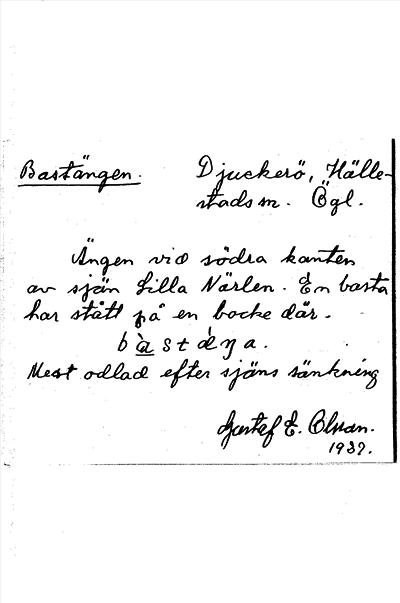 Bastängen. Djuckerö, Hälle-
stads sn. Ögl.
Ängen vid södra kanten
av sjön Lilla Närlen. En basta
har stått på en backe där.
bàstǽŋa.
Mest odlad efter sjöns sänkning
Gustaf E. Olsson.
1937.